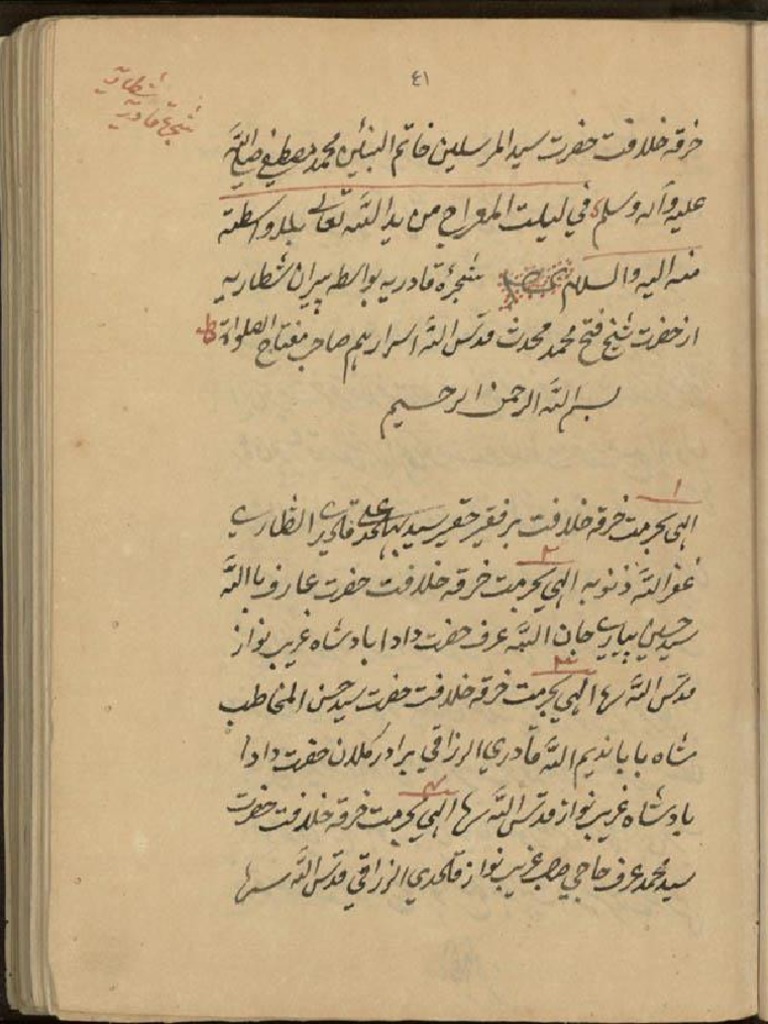 ٤١
شطاریه
شجرة قادریه
خرقه خلافت حضرت سید المرسلین خاتم النبیین محمد مصطفی صلی الله
علیه وآله وسلم في لیلت المعراج من ید الله تعالی بلا واسطة
منه الیه والسلام شجرۀ قادریه بواسطه پیران شطاریه
از حضرت شیخ فتح محمد محدث قدس الله اسرارهم صاحب مفتاح الصلواة
بسم الله الرحمن الرحیم
۱
الهي بحرمت خرقه خلافت بر فقیر حقیر سید علی قادري الشطاري
غفر الله ذنوبه ۲ الهي بحرمت خرقه خلافت حضرت عارف بالله
سید حسین پیارے جان الله عرف حضرت دادا بادشاه غریب نواز
قدس الله سرها ۳ الهي بحرمت خرقه خلافت حضرت سید حسن المخاطب
شاه بابا ندیم الله قادري الرزاقي برادر کلان حضرت دادا
بادشاه غریب نواز قدس الله سرها ۴ الهي بحرمت خرقه خلافت حضرت
سید محمد عرف حاجي صاحب غریب نواز قادري الرزاقي قدس الله سرها